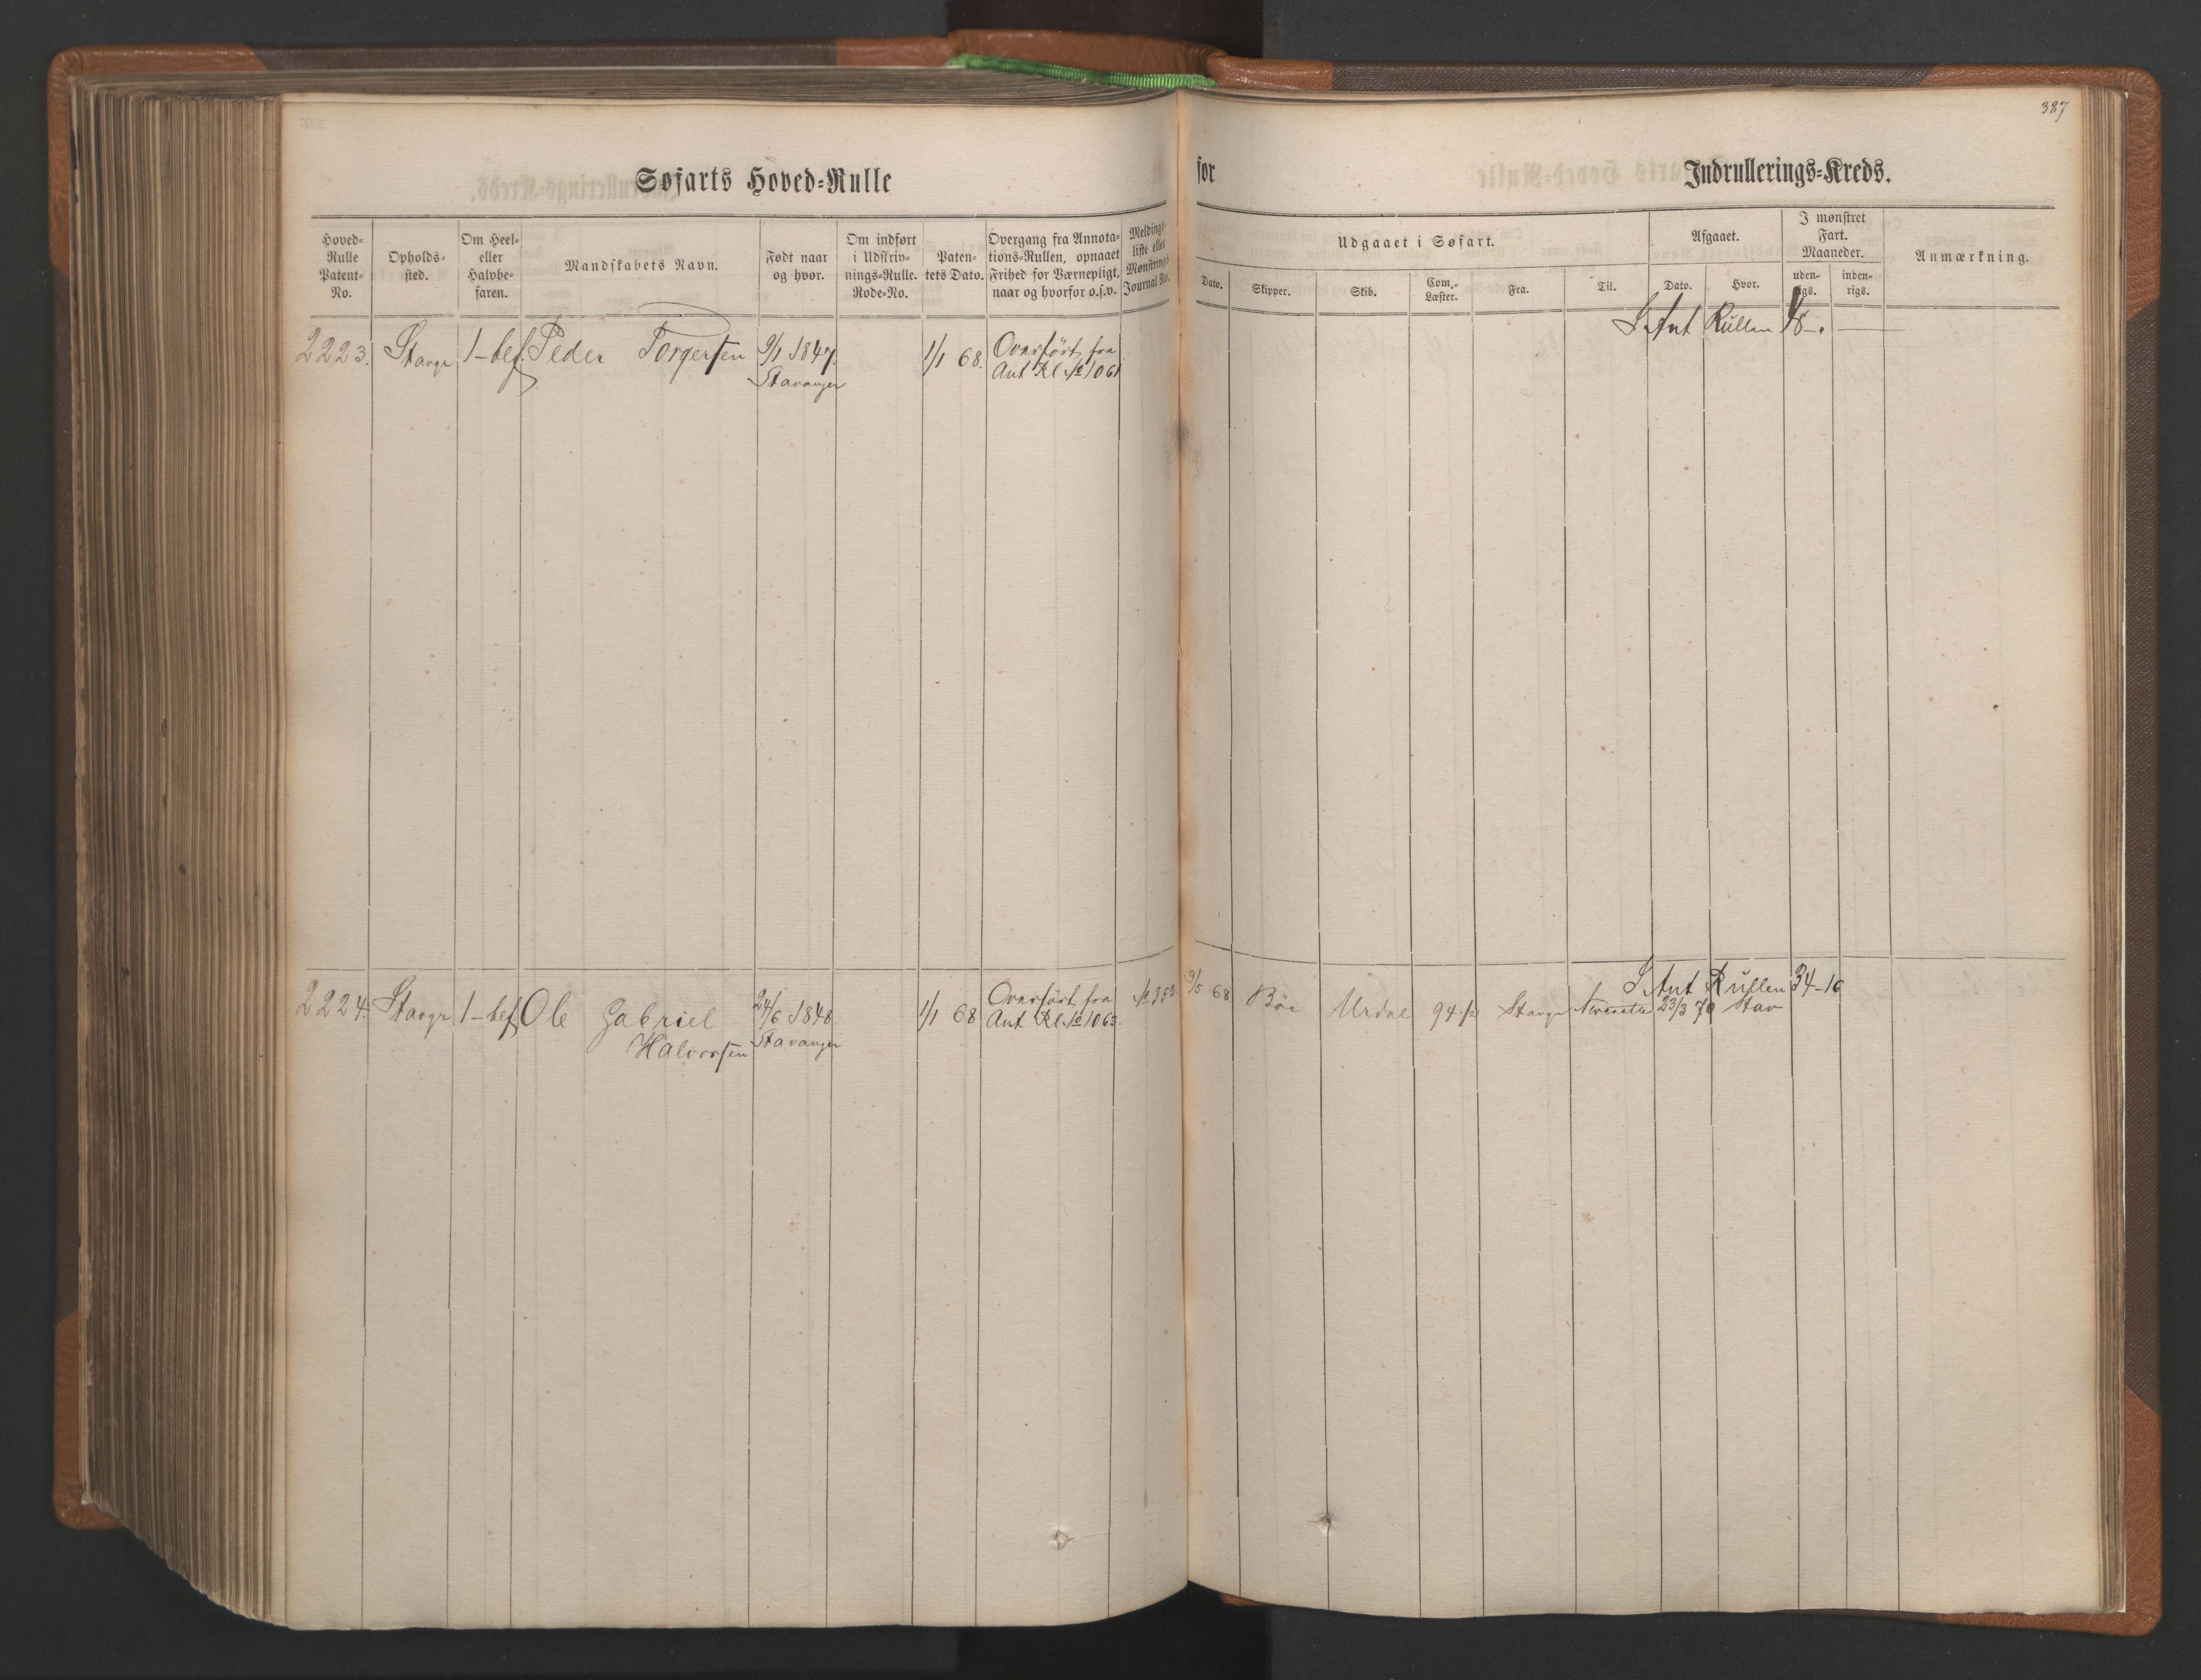 387
Søfarts Hoved-Rulle for Indrullerings-Kreds.
Hoved-Rulle Patent-No.
Opholds-sted.
Om Heel- eller Halvbe-faren.
Mandskabets Navn.
Født naar og hvor.
Om indført i Udskriv-nings-Rulle. Rode-No.
Paten-tets Dato.
Overgang fra Annota-tions-Rullen, opnaaet Frihed for Værnepligt, naar og hvorfor o.s.v.
Meldings-liste eller Mønstrings Journal No.
Udgaaet i Søfart.
Dato.
Skipper.
Skib.
Com.-Læster.
Fra.
Til.
Afgaaet.
Dato.
Hvor.
I mønstret Fart. Maaneder.
uden-rigs.
inden-rigs.
Anmærkning.
I Ant Rullen
2223. Stavgr 1-bef. Peder Torgersen 9/1 1847. 1/1 68. Overført fra
Stavanger Ant Rl No 1061
I Ant Rullen 34-16
2224. Stavgr 1-bef Ole Gabriel 24/6 1848. 1/1 68 Overført fra 9/5 68 Böe 94 1/2 Stavgr 23/3 70 Stav
Halvorsen Stavanger Ant Rl No 1063.